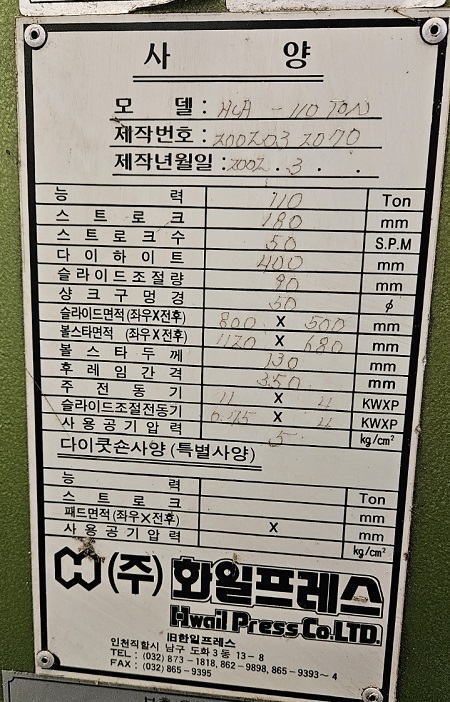 사 양
모 델 : HWA - 110 TON
제작번호 : 200203 2070
제작년월일 : 2002 . 3 . .
능 력 110 Ton
스 트 로 크 180 mm
스 트 로 크 수 50 S.P.M
다 이 하 이 트 400 mm
슬 라 이 드 조 절 량 90 mm
샹 크 구 멍 경 50 ϕ
슬라이드면적 (좌우X전후) 800 X 500 mm
볼스타면적 (좌우X전후) 1120 X 680 mm
볼 스 타 두 께 130 mm
후 레 임 간 격 350 mm
주 전 동 기 11 X 4 KWXP
슬라이드조절전동기 0.75 X 4 KWXP
사 용 공 기 압 력 5 kg/cm²
다이쿳숀사양 (특별사양)
능 력 Ton
스 트 로 크 mm
패드면적 (좌우X전후) X mm
사 용 공 기 압 력 kg/cm²
(주) 화일프레스
Hwail Press Co.LTD.
旧한일프레스
인천직할시 남구 도화 3 동 13 - 8
TEL : (032) 873 - 1818, 862 - 9898, 865 - 9393~4
FAX : (032) 865 - 9395